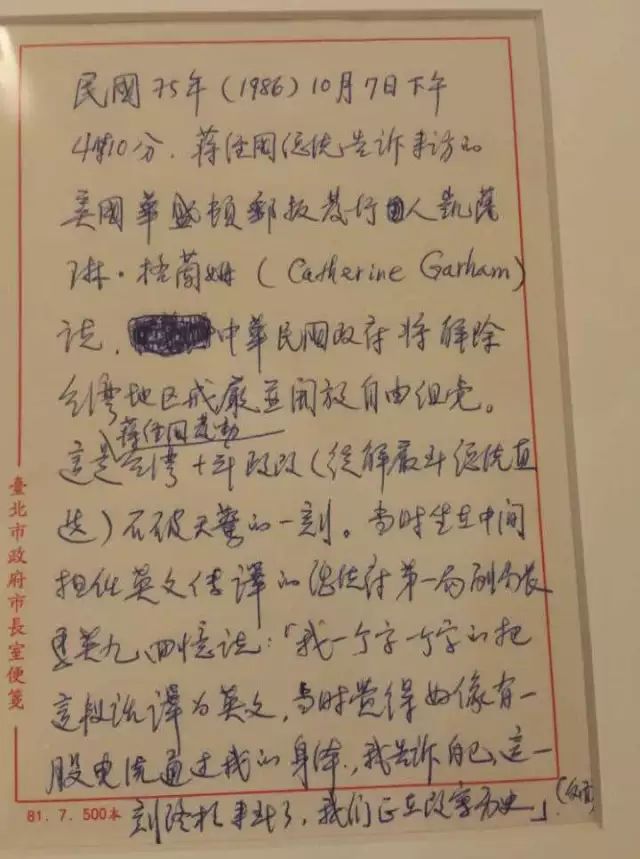 民國75年(1986)10月7日下午
4时10分，蒋经国总统告诉来访的
美國華盛頓郵报發行人凱薩
琳·格蘭姆(Catherine Garham)
说，中華民國政府将解除
台湾地区戒嚴並開放自由组党。
蒋经国發動
这是台湾十年政改(從解嚴到总统直
选)石破天驚的一刻。当时坐在中间
担任英文传譯的总统府第一局副局长
馬英九回憶说：「我一个字一个字的把
这段话譯为英文，当时觉得好像有一
股电流通过我的身体，我告诉自己，这一
刻终於来到了，我们正在改寫历史」
臺北市政府市長室便箋
81. 7. 500本